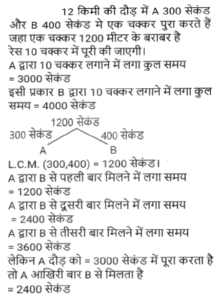 12 किमी की दौड़ में A 300 सेकंड
और B 400 सेकंड मे एक चक्कर पुरा करते हैं
जहा एक चक्कर 1200 मीटर के बराबर है
रेस 10 चक्कर में पूरी की जाएगी।
A द्वारा 10 चक्कर लगाने में लगा कुल समय
= 3000 सेकंड
इसी प्रकार B द्वारा 10 चक्कर लगाने में लगा कुल
समय = 4000 सेकंड
1200 सेकंड
300 सेकंड 400 सेकंड
A B
L.C.M. (300,400) = 1200 सेकंड।
A द्वारा B से पहली बार मिलने में लगा समय
= 1200 सेकंड
A द्वारा B से दूसरी बार मिलने में लगा समय
= 2400 सेकंड
A द्वारा B से तीसरी बार मिलने में लगा समय
= 3600 सेकंड
लेकिन A दौड़ को = 3000 सेकंड में पूरा करता है
तो A आखिरी बार B से मिलता है
= 2400 सेकंड